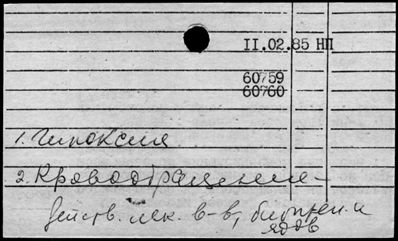 II.02.85 НП
60759
60760
1. Гипоксия
2. Кровообращение -
действ. лек. в-в,
ядов